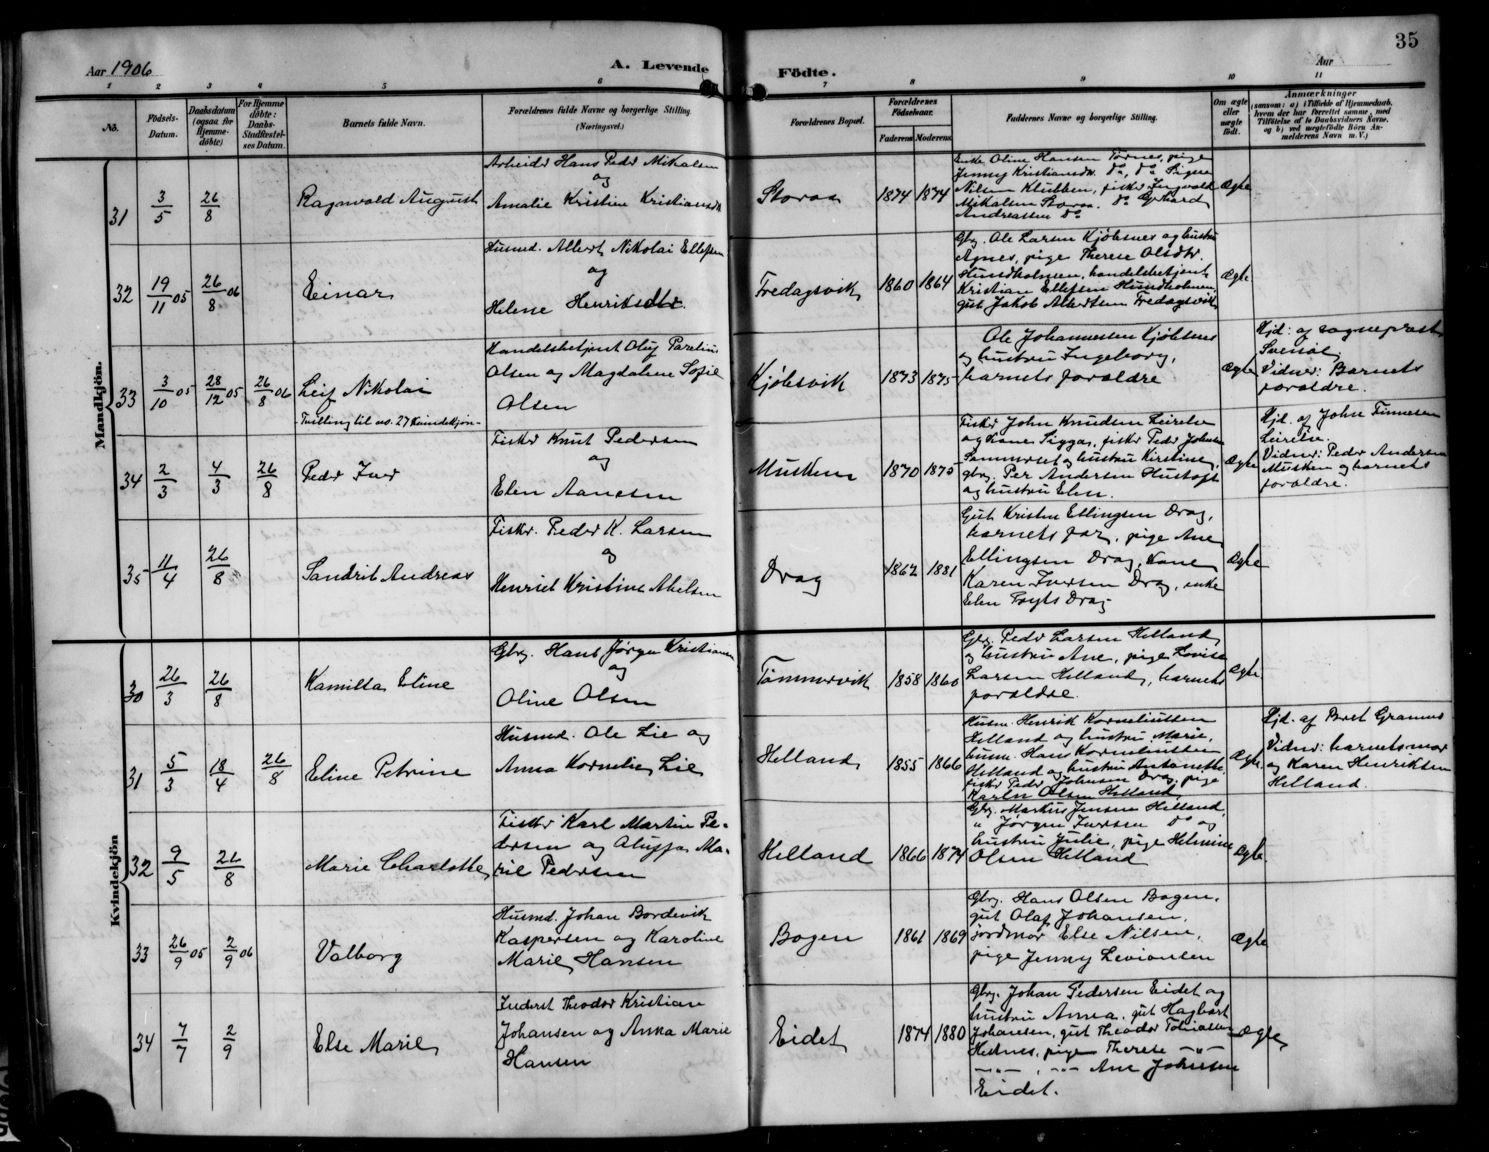 35
Aar 1906
A. Levende
Födte.
Aar
1 2 3 4 5 6 7 8 9 10 11
No.
Födsels-
Datum.
Daabsdatum
(ogsaa for
Hjemme-
döbte)
For Hjemme
döbte:
Daabs-
Stadfæstel-
ses Datum.
Barnets fulde Navn.
Forældrenes fulde Navne og borgerlige Stilling.
(Næringsvei.)
Forældrenes Bopæl.
Forældrenes
Födselsaar.
Faderens Moderens
Faddernes Navne og borgerlige Stilling.
Om ægte
eller
uægte
födt.
Anmærkninger
(saasom: a) i Tilfælde af Hjemmedaab,
hvem der har forrettet samme, med
Tilföielse af to Daabsvidners Navne.
og b) ved uægtefödte Börn An-
melderens Navn m. V.)
Mandkjön.
31
3/5
26/8
Ragnvald August
Arbeider Hans Peder Mikalsen
og
Amalie Kristine Kristiansdtr
Storaa
1874 1874
Enke Oline Hansen Tørnes, pige
Jenny Kristiansdr. do, do Signe
Nilsen Klubben, fisker Ingvald
Mikalsen Storaa. do Gerhard
Andreassen do
Ægte
32
19/11 05
26/8 06
Einar
Husmd. Albert Nikolai Ellefsen
og
Helene Henriksdtr.
Fredagsvik
1860 1864
Gbr. Ole Larsen Kjøbsnes og hustru
Agnes, pige Therese Olsdtr.
Hundholmen, handelsbetjent
Kristian Ellefsen Hundholmen,
gut Jakob Albertsen Fredagsvik
Ægte
33
3/10 05
28/12 05
26/8 06
Leif Nikolai
Tvilling til no. 27 Kvindekjøn
Handelsbetjent Oluf Parelius
Olsen og Magdalene Sofie
Olsen
Kjøbsvik
1873 1875
Ole Johannesen Kjøbsnes
og hustru Ingeborg,
barnets forældre
Ægte
Hjd: af sogneprest
Svensøt
Vidner: Barnets
forældre.
34
2/3
4/3
26/8
Peder Iver
Fisker Knut Pedersen
og
Elen Aanesen
Musken
1870 1875
Fisker John Knudsen Leirelse
og kone Sigga, fisker Peder Johnsen
Sommerset og hustru Kirstine,
gbr. Per Andersen Hustoft
og hustru Elen.
Ægte
Hjd. af John Finnesen
Leirelse.
Vidner: Peder Andersen
Musken og barnets
forældre.
35
11/4
26/8
Sandrit Andreas
Fisker. Peder K. Larsen
og
Henriet Kristine Abelsen
Drag
1862 1881
Gut Kristen Ellingsen Drag,
barnets far, pige Ane
Ellingsen Drag, Kone
Karen Iversen Drag, enke
Elen Drag
Ægte
Kvindekjön
30
26/3
26/8
Kamilla Eline
Gbr. Hans Jørgen Kristiansen
og
Oline Olsen
Tømmervik
1858 1860
Gbr. Peder Larsen Helland
og hustru Ane, pige Lovise
Larsen Helland, barnets
forældre.
Ægte
31
5/3
18/4
26/8
Eline Petrine
Husmd. Ole Lie og
Anna Kornelie Lie
Helland
1855 1866
Husm. Henrik Korneliussen
Helland og hustru Marie,
husm. Hans Korneliussen
Helland og hustru Antonette
fisker Peder Johnsen Drag, pige
Karen Olsen Helland
Ægte
Hjd. af Beret Grannes
Vidner: barnets mor
og Karen Henriksen
Helland.
32
9/5
26/8
Marie Charlotte
Fisker Karl Martin Pe-
dersen og Aluffa Ma-
rie Pedersen
Helland
1866 1874
Gbr. Markus Jensen Helland,
" Jørgen Iversen do og
hustru Julie, pige Helmine
Olsen Helland
Ægte
33
26/9 05
2/9 06
Valborg
Husmd. Johan Bordevik
Kaspersen og Karoline
Marie Hansen
Bogen
1861 1869
Gbr. Hans Olsen Bogen,
gut Olaf Johansen,
jordmor Else Nilsen,
pige Jenny Levionsen
Ægte
34
7/7
2/9
Else Marie
Inderst Theodor Kristian
Johansen og Anna Marie
Hansen
Eidet
1874 1880
Gbr. Johan Pedersen Eidet og
hustru Anna, gut Hagbart
Johansen, gut Theodor Tobiassen
Hednes, pige Therese —"—
—"—, —"— Ane Johnsen
Eidet.
Ægte